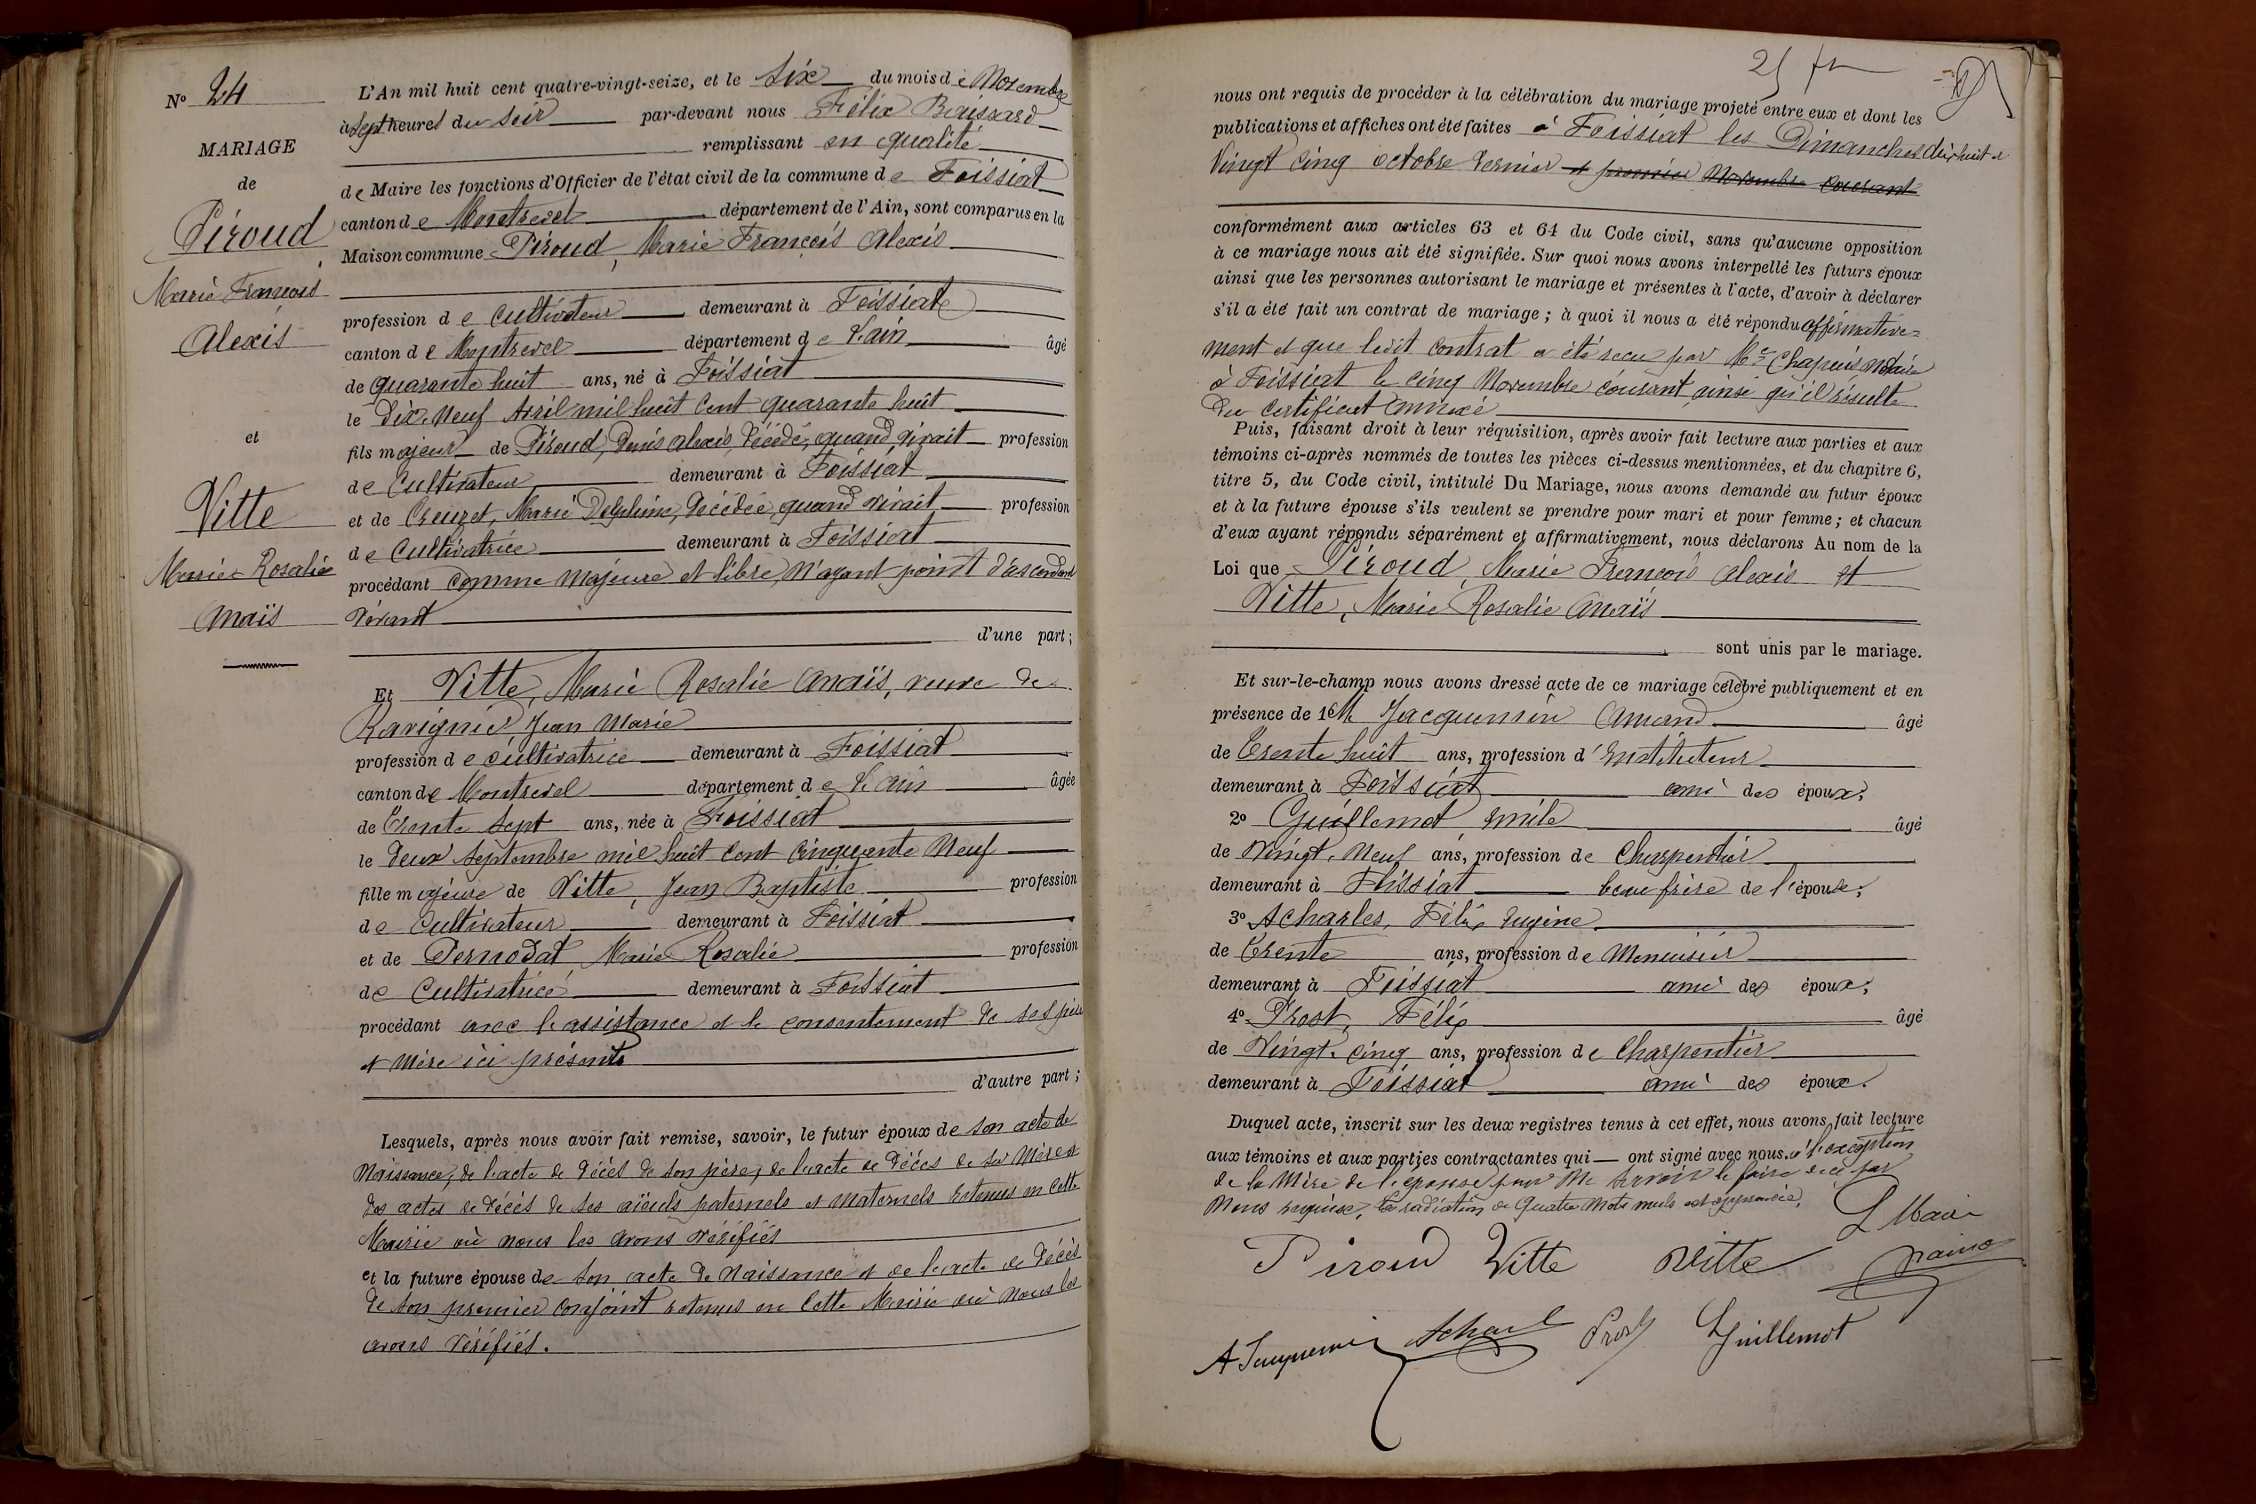 N° 24
MARIAGE
de
Piroud
Marie François
Alexis
et
Vitte
Marie Rosalie
Anaïs
L'An mil huit cent quatre-vingt-seize, et le six du mois de Novembre
à sept heures du soir par-devant nous Félix
remplissant en qualité
de Maire les fonctions d'Officier de l'état civil de la commune de Foissiat
canton de Montrevel département de l'Ain, sont comparus en la
Maison commune Piroud, Marie François Alexis
profession de Cultivateur demeurant à Foissiat
canton de Montrevel département de l'ain âgé
de quarante huit ans, né à Foissiat
le Dix-Neuf Avril mil huit Cent quarante huit
fils majeur de Piroud, Denis Alexis, décédé, quand vivait profession
de Cultivateur demeurant à Foissiat
et de Creuzet, Marie Delphine, Décédée, quand vivait profession
de Cultivatrice demeurant à Foissiat
procédant comme Majeure et libre, N'ayant point d'ascendant
vivant
d'une part;
Et Vitte, Marie Rosalie Anaïs, veuve de
Ravignier Jean Marie
profession de cultivatrice demeurant à Foissiat
canton de Montrevel département de l'ain âgée
de Trente Sept ans, née à Foissiat
le Deux Septembre mil huit Cent Cinquante Neuf
fille majeure de Vitte, Jean Baptiste profession
de Cultivateur demeurant à Foissiat
et de Pernodat Marie Rosalie profession
de Cultivatrice demeurant à Foissiat
procédant avec l'assistance et le consentement de ses père
et Mère ici présents
d'autre part;
Lesquels, après nous avoir fait remise, savoir, le futur époux de son acte de
Naissance, de l'acte de décès de son père, de l'acte de décès de sa Mère et
des actes de décès de ses aïeuls paternels et maternels retenus en cette
Mairie où nous les avons vérifiés
et la future épouse de son acte de Naissance et de l'acte de décès
de son premier conjoint retenus en cette Mairie où nous les
avons vérifiés.
25
nous ont requis de procéder à la célébration du mariage projeté entre eux et dont les
publications et affiches ont été faites à Foissiat les Dimanches dix huit et
Vingt cinq octobre dernier et premier Novembre courant
conformément aux articles 63 et 64 du Code civil, sans qu'aucune opposition
à ce mariage nous ait été signifiée. Sur quoi nous avons interpellé les futurs époux
ainsi que les personnes autorisant le mariage et présentes à l'acte, d'avoir à déclarer
s'il a été fait un contrat de mariage; à quoi il nous a été répondu affirmative=
ment et que ledit contrat a été reçu par Me Chapuis notaire
à Foissiat le cinq Novembre courant ainsi qu'il résulte
du certificat annexé
Puis, faisant droit à leur réquisition, après avoir fait lecture aux parties et aux
témoins ci-après nommés de toutes les pièces ci-dessus mentionnées, et du chapitre 6,
titre 5, du Code civil, intitulé Du Mariage, nous avons demandé au futur époux
et à la future épouse s'ils veulent se prendre pour mari et pour femme; et chacun
d'eux ayant répondu séparément et affirmativement, nous déclarons Au nom de la
Loi que Piroud, Marie François Alexis et
Vitte, Marie Rosalie Anaïs
sont unis par le mariage.
Et sur-le-champ nous avons dressé acte de ce mariage célébré publiquement et en
présence de 1° M. Jacquemin Amand âgé
de Trente huit ans, profession d'Instituteur
demeurant à Foissiat ami des époux;
2° Guillemot Emile âgé
de Vingt-Neuf ans, profession de Charpentier
demeurant à Foissiat beau frère de l'épouse;
3° Acharles, Félix Eugène
de Trente ans, profession de Menuisier
demeurant à Foissiat ami des époux;
4° Prost, Félix âgé
de Vingt-cinq ans, profession de Charpentier
demeurant à Foissiat ami des époux.
Duquel acte, inscrit sur les deux registres tenus à cet effet, nous avons fait lecture
aux témoins et aux parties contractantes qui ont signé avec nous à l'exception
de la Mère de l'épouse pour ne savoir le faire de ce par
Nous requise. La radiation de Quatre mots nuls est approuvée.
Le Maire
Piroud Vitte Vitte
A Jacquemin Acharl Prost Guillemot